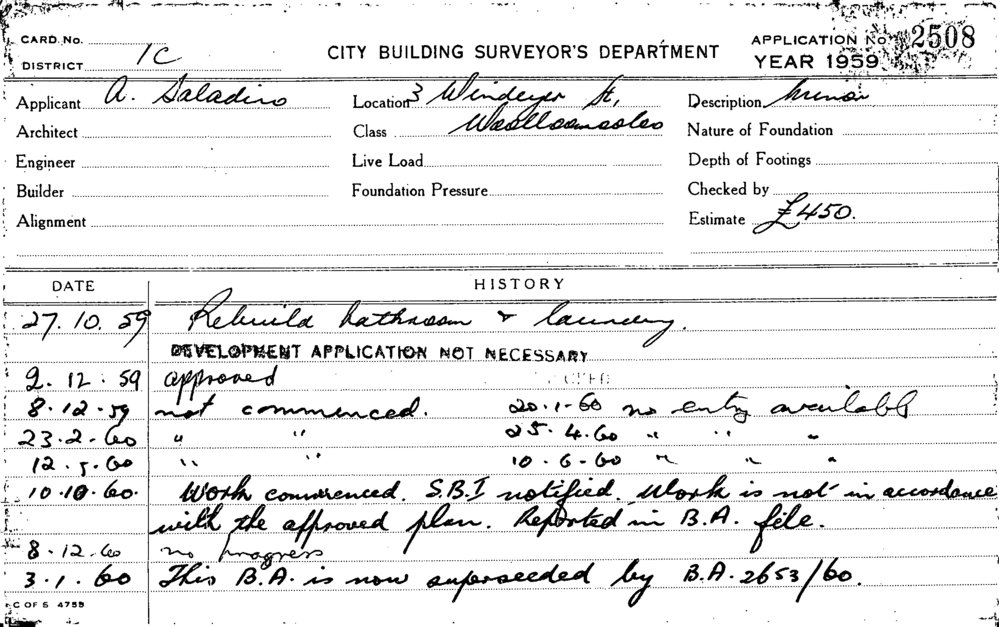 CARD NO.
DISTRICT 1C
CITY BUILDING SURVEYOR'S DEPARTMENT
APPLICATION No. 2508
YEAR 1959
Applicant A. Saladino
Location 3 Windeyer St,
Description minor
Architect
Class Woolloomooloo
Nature of Foundation
Engineer
Live Load
Depth of Footings
Builder
Foundation Pressure
Checked by
Alignment
Estimate £450.
DATE HISTORY
27.10.59 Rebuild bathroom & laundry.
DEVELOPMENT APPLICATION NOT NECESSARY
2.12.59 approved
8.12.59 not commenced. 20.1.60 no entry available
23.2.60 " " 25.4.60 " " "
12.5.60 " " 10.6.60 " " "
10.10.60. Work commenced. S.B.I notified. Work is not in accordance
with the approved plan. Reported in B.A. file.
8.12.60 no progress
3.1.60 This B.A. is now superseeded by B.A. 2653/60.
C OF S 4755